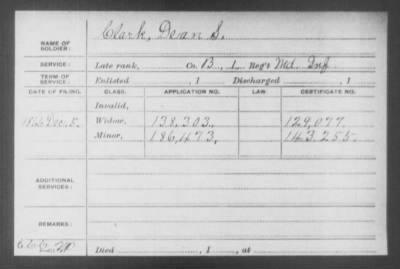 NAME OF SOLDIER: Clark, Dean S.
SERVICE: Late rank, Co. B, 1 Reg't Md. Inf.
TERM OF SERVICE: Enlisted , 1 Discharged , 1
DATE OF FILING. CLASS. APPLICATION NO. LAW. CERTIFICATE NO.
Invalid,
1866 Dec. 5. Widow, 138,303. 129,077.
Minor, 186,473. 143,255.
ADDITIONAL SERVICES:
REMARKS:
Died , 1 , at